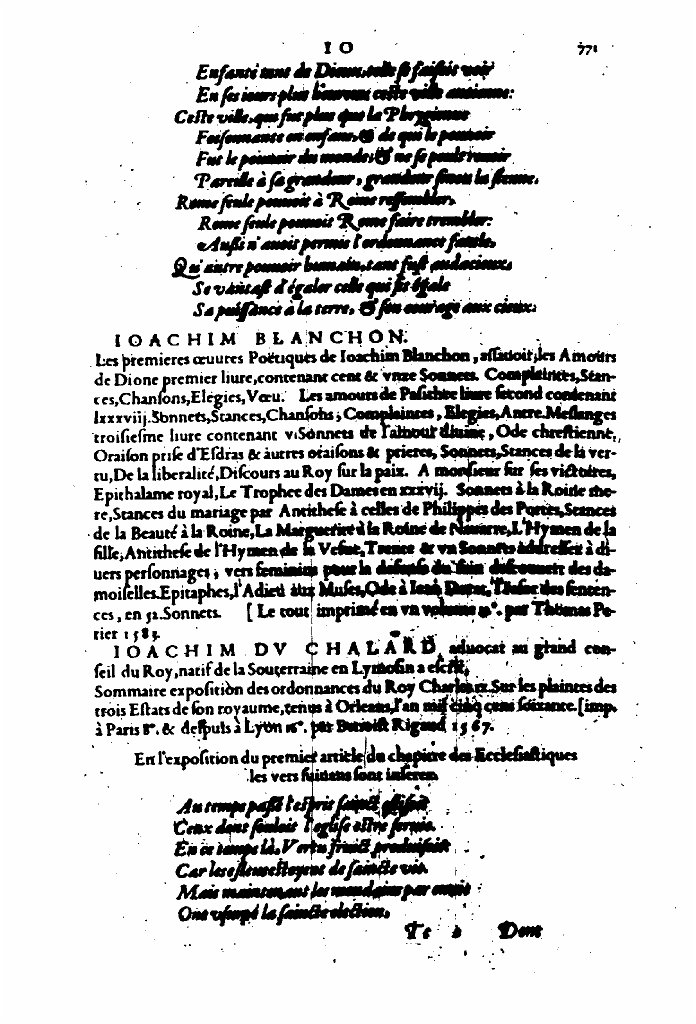 IO 771
Enfanté tant de Dieux, telle se faisoit voir
En ses iours plus heureux ceste ville ancienne:
Ceste ville, qui fut plus que la Phrygienne
Foisonnante en enfans, & de qui le pouuoir
Fut le pouuoir du monde, & ne se peult reuoir
Pareille à sa grandeur, grandeur sinon la sienne.
Rome seule pouuoit à Rome ressembler,
Rome seule pouuoit Rome faire trembler:
Aussi n'auoit permis l'ordonnance fatale,
Qu'autre pouuoir humain, tant fust audacieux,
Se vantast d'égaler celle qui fit égale
Sa puissance à la terre, & son courage aux cieux.
IOACHIM BLANCHON.
Les premieres œuures Poëtiques de Ioachim Blanchon, assauoir, les Amours
de Dione premier liure, contenant cent & vnze Sonnets. Complainctes, Stan-
ces, Chansons, Elegies, Vœu. Les amours de Pasithee liure second contenant
lxxxviij. Sonnets, Stances, Chansons, Complainces, Elegies, Antre. Meslanges
troisiesme liure contenant vi Sonnets de l'amour diuine, Ode chrestienne,
Oraison prise d'Esdras & autres oraisons & prieres, Sonnets, Stances de la ver-
tu, De la liberalité, Discours au Roy sur la paix. A monsieur sur ses victoires,
Epithalame royal, Le Trophee des Dames en xxxvij. Sonnets à la Roine me-
re, Stances du mariage par Antithese à celles de Philippes des Portes, Stances
de la Beauté à la Roine, La Marguerite à la Roine de Nauarre, L'Hymen de la
fille, Antithese de l'Hymen de la Vefue, Trente & vn Sonnets addressez à di-
uers personnages, vers feminins pour la defense du discourir des da-
moiselles. Epitaphes, l'Adieu aux Muses, Ode à Iean Dorat, des senten-
ces, en 52. Sonnets. [Le tout imprimé en vn volume par Thomas Pe-
rier 1583.
IOACHIM DV CHALARD, aduocat au grand con-
seil du Roy, natif de la Souterraine en Lymosin a escrit,
Sommaire exposition des ordonnances du Roy Charles ix. Sur les plaintes des
trois Estats de son royaume, tenus à Orleans, l'an mil cinq cens soixante. [imp.
à Paris 8°. & despuis à Lyon 16°. par Benoist Rigaud 1567.
En l'exposition du premier article du chapitre des Ecclesiastiques
les vers suiuans sont inserez.
Au temps passé l'esprit sainct elisoit
Ceux dont souloit l'eglise estre seruie.
En ce temps là, Vertu fruict produisoit
Car les esleuz estoyent de saincte vie.
Mais maintenant les mondains par enuie
Ont vsurpé la saincte election,
Tt 2 Dont